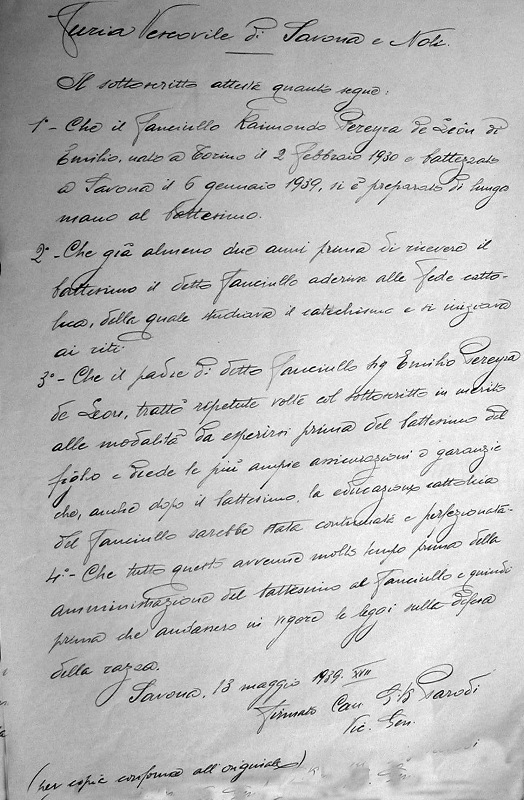 Curia Vescovile di Savona e Noli.
Il sottoscritto attesta quanto segue:
1°- Che il fanciullo Raimondo Pereyra de Leon di
Emilio, nato a Torino il 2 febbraio 1930 e battezzato
a Savona il 6 gennaio 1939, si è preparato di lunga
mano al battesimo.
2°- Che già almeno due anni prima di ricevere il
battesimo il detto fanciullo aderiva alla fede catto-
lica, della quale studiava il catechismo e si iniziava
ai riti.
3°- Che il padre di detto fanciullo sig Emilio Pereyra
de Leon, trattò ripetute volte col sottoscritto in merito
alle modalità da esperirsi prima del battesimo del
figlio e diede le più ampie assicurazioni e garanzie
che, anche dopo il battesimo, la educazione cattolica
del fanciullo sarebbe stata continuata e perfezionata-
4°- Che tutto questo avvenne molto tempo prima della
amministrazione del battesimo al fanciullo e quindi
prima che andassero in vigore le leggi sulla difesa
della razza.
Savona, 13 maggio 1939. XVII
firmato Can. G.B. Parodi
Vic. Gen.
(per copia conforme all'originale)